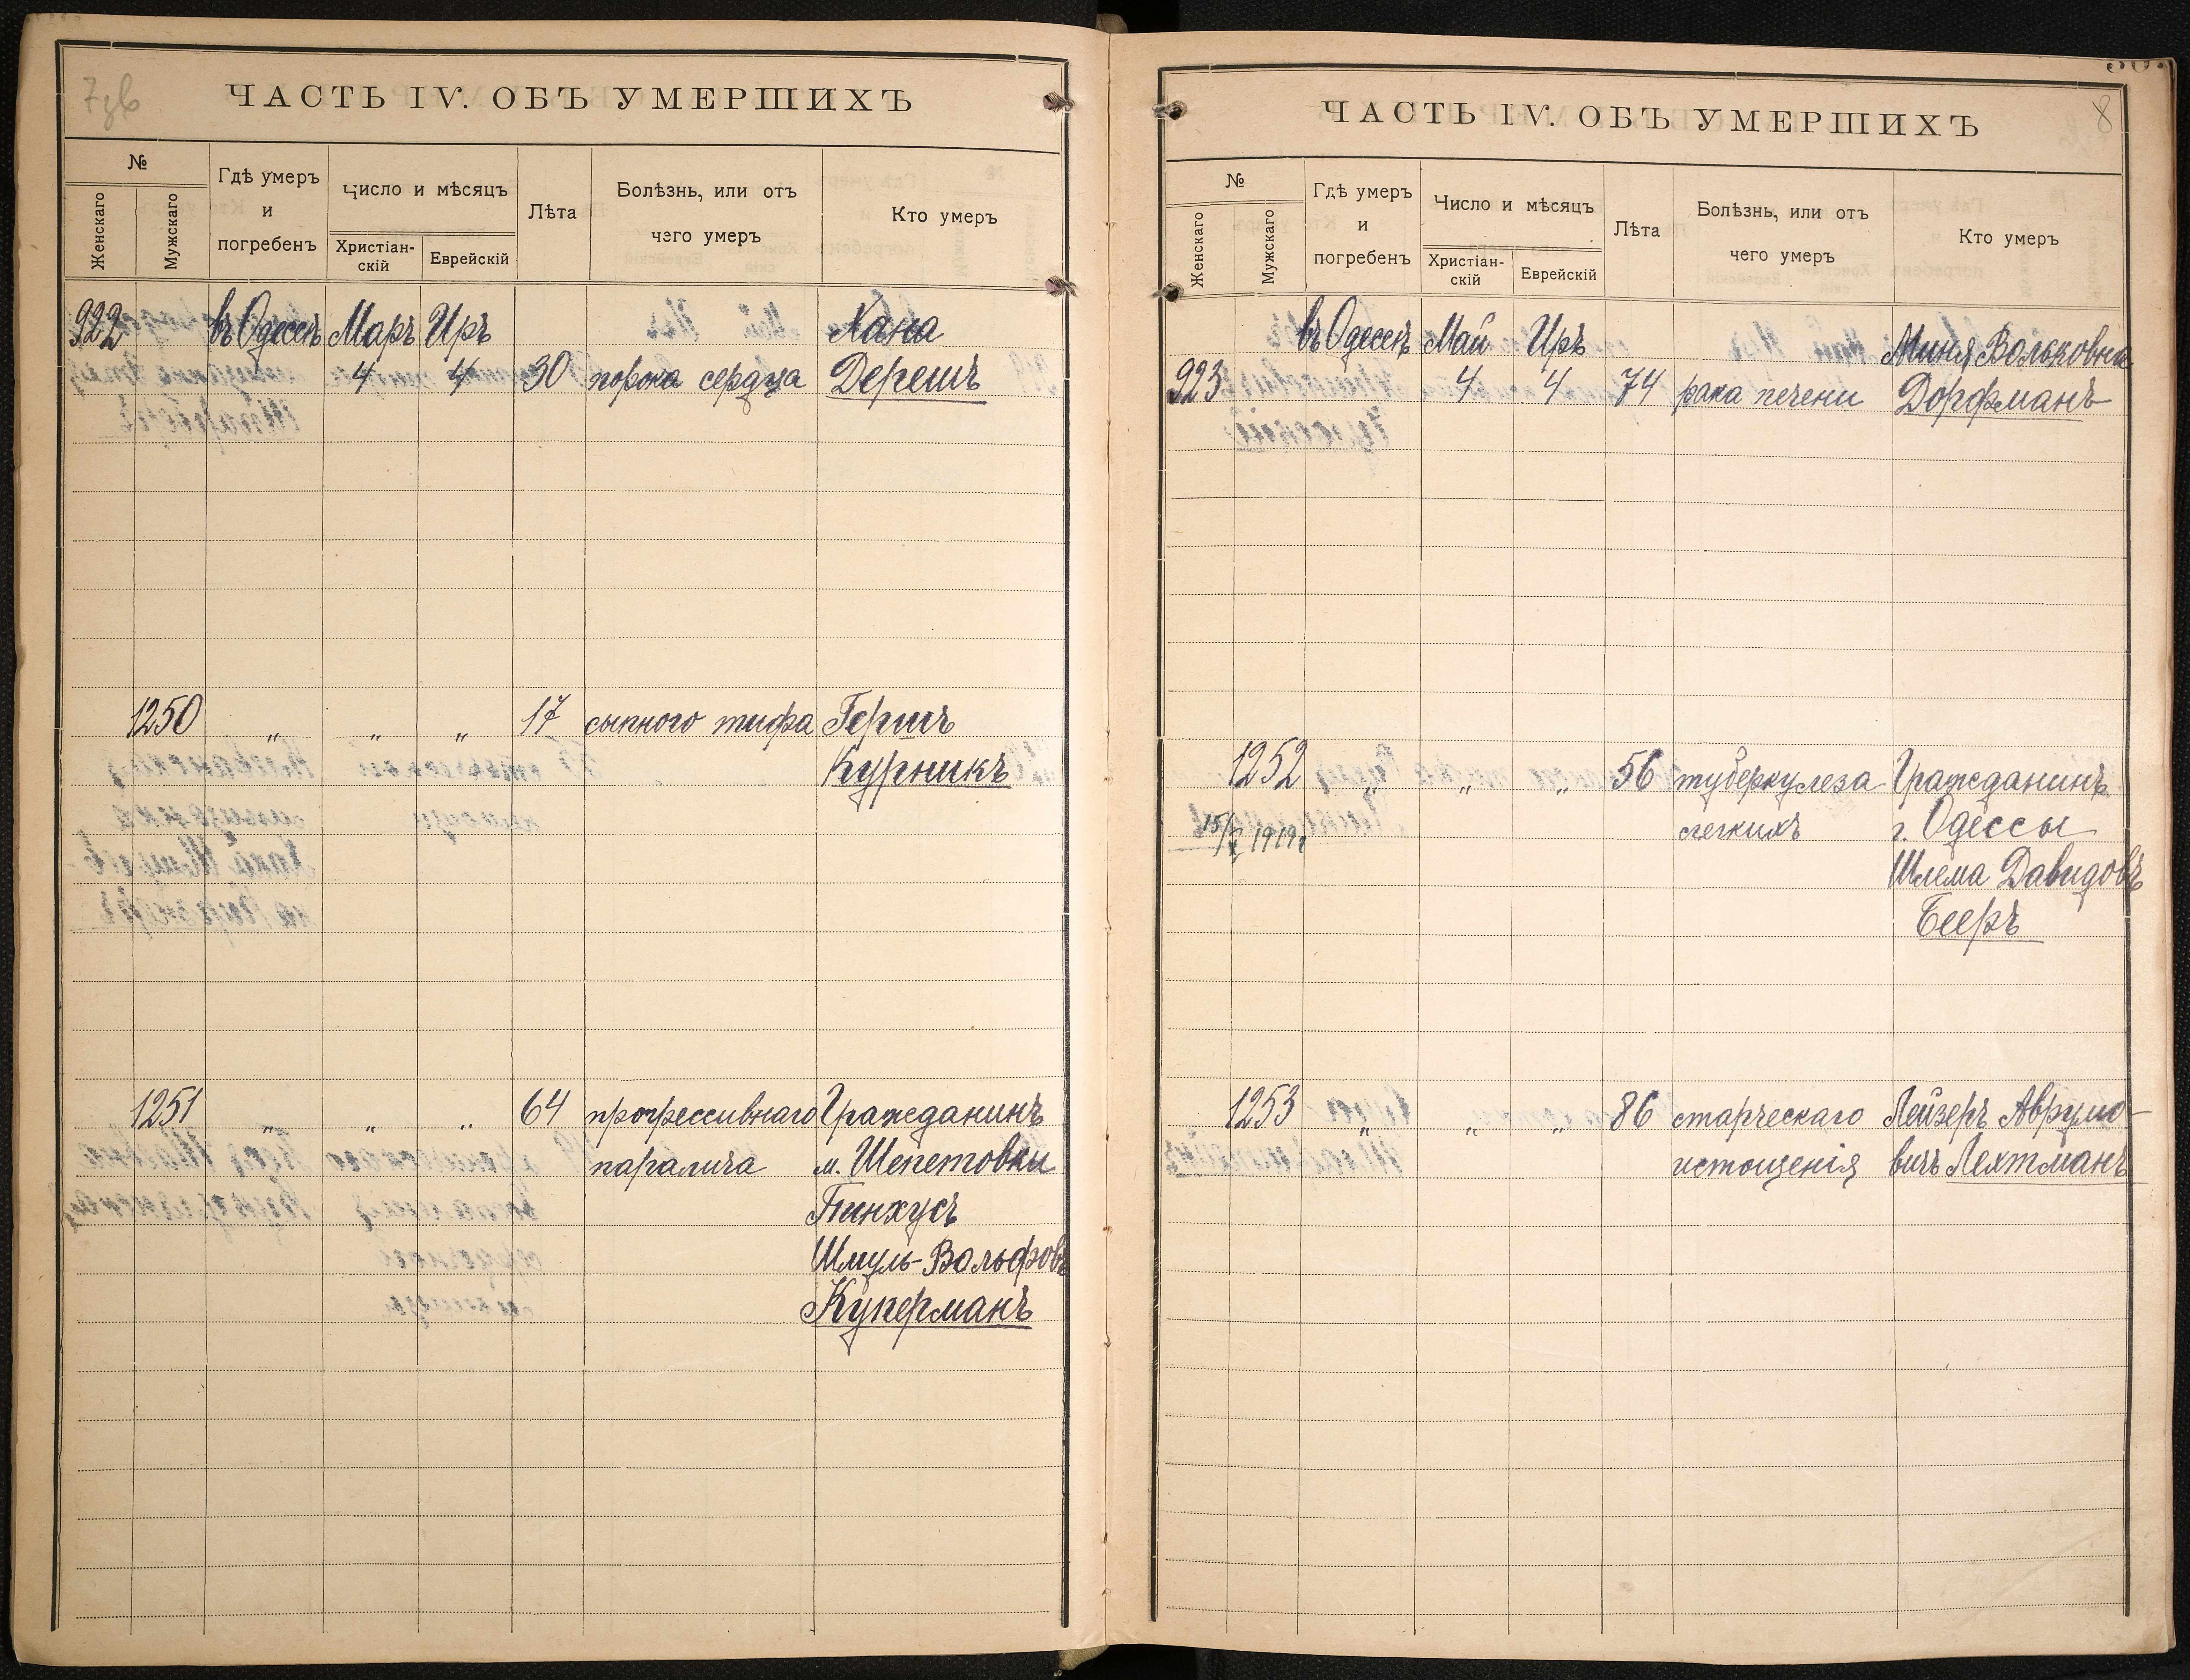 7зв
ЧАСТЬ IV. ОБЪ УМЕРШИХЪ
№
Женскаго
Мужскаго
Гдѣ умеръ
и
погребенъ
Число и мѣсяцъ
Христіан-
скій
Еврейскій
Лѣта
Болѣзнь, или отъ
чего умеръ
Кто умеръ
922 въ Одессѣ Маръ Иръ Хана
4 4 30 порока сердца Дерешъ
1250 „ „ „ 17 сыпного тифа Гершъ
Курникъ
1251 „ „ „ 64 прогрессивнаго Гражданинъ
паралича м. Шепетовки
Пинхусъ
Шмуль-Вольфовъ
Куперманъ
8
ЧАСТЬ IV. ОБЪ УМЕРШИХЪ
№
Женскаго
Мужскаго
Гдѣ умеръ
и
погребенъ
Число и мѣсяцъ
Христіан-
скій
Еврейскій
Лѣта
Болѣзнь, или отъ
чего умеръ
Кто умеръ
въ Одессѣ Май Иръ Миня Вольковна
923 4 4 74 рака печени Дорфманъ
1252 „ „ „ 56 туберкулеза Гражданинъ
легкихъ г. Одессы
15/X 1919г
Шлема Давидовъ
Бееръ
1253 „ „ „ 86 старческаго Лейзеръ Аврумо-
истощенія вичъ Лехтманъ